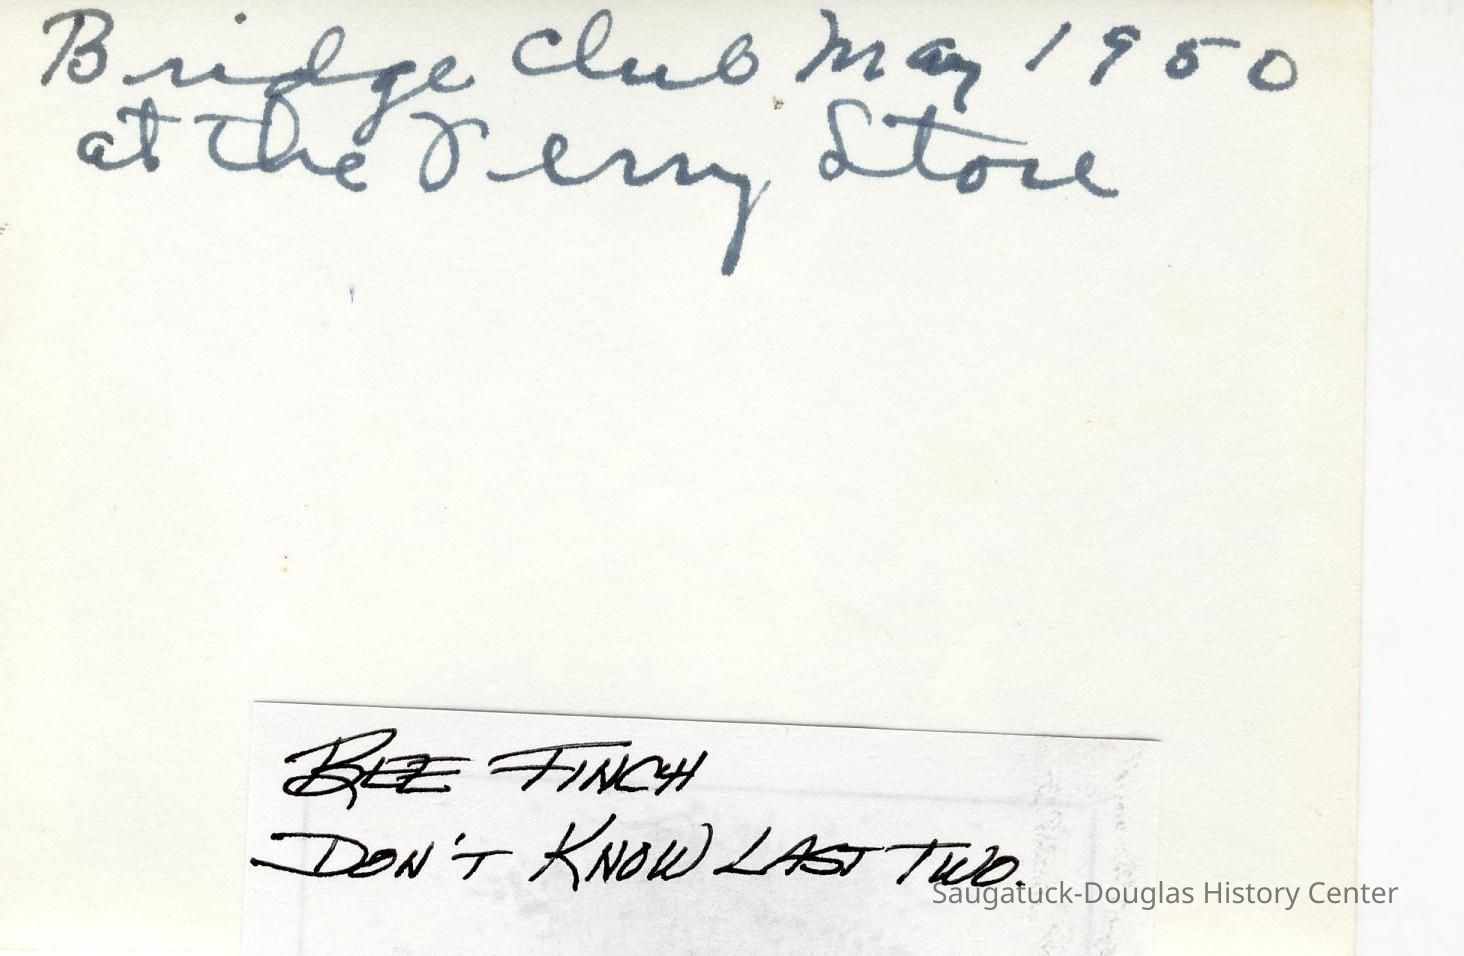 Bridge Club May 1950
at the Terry Store
BEE FINCH
DON'T KNOW LAST TWO.
Saugatuck-Douglas History Center